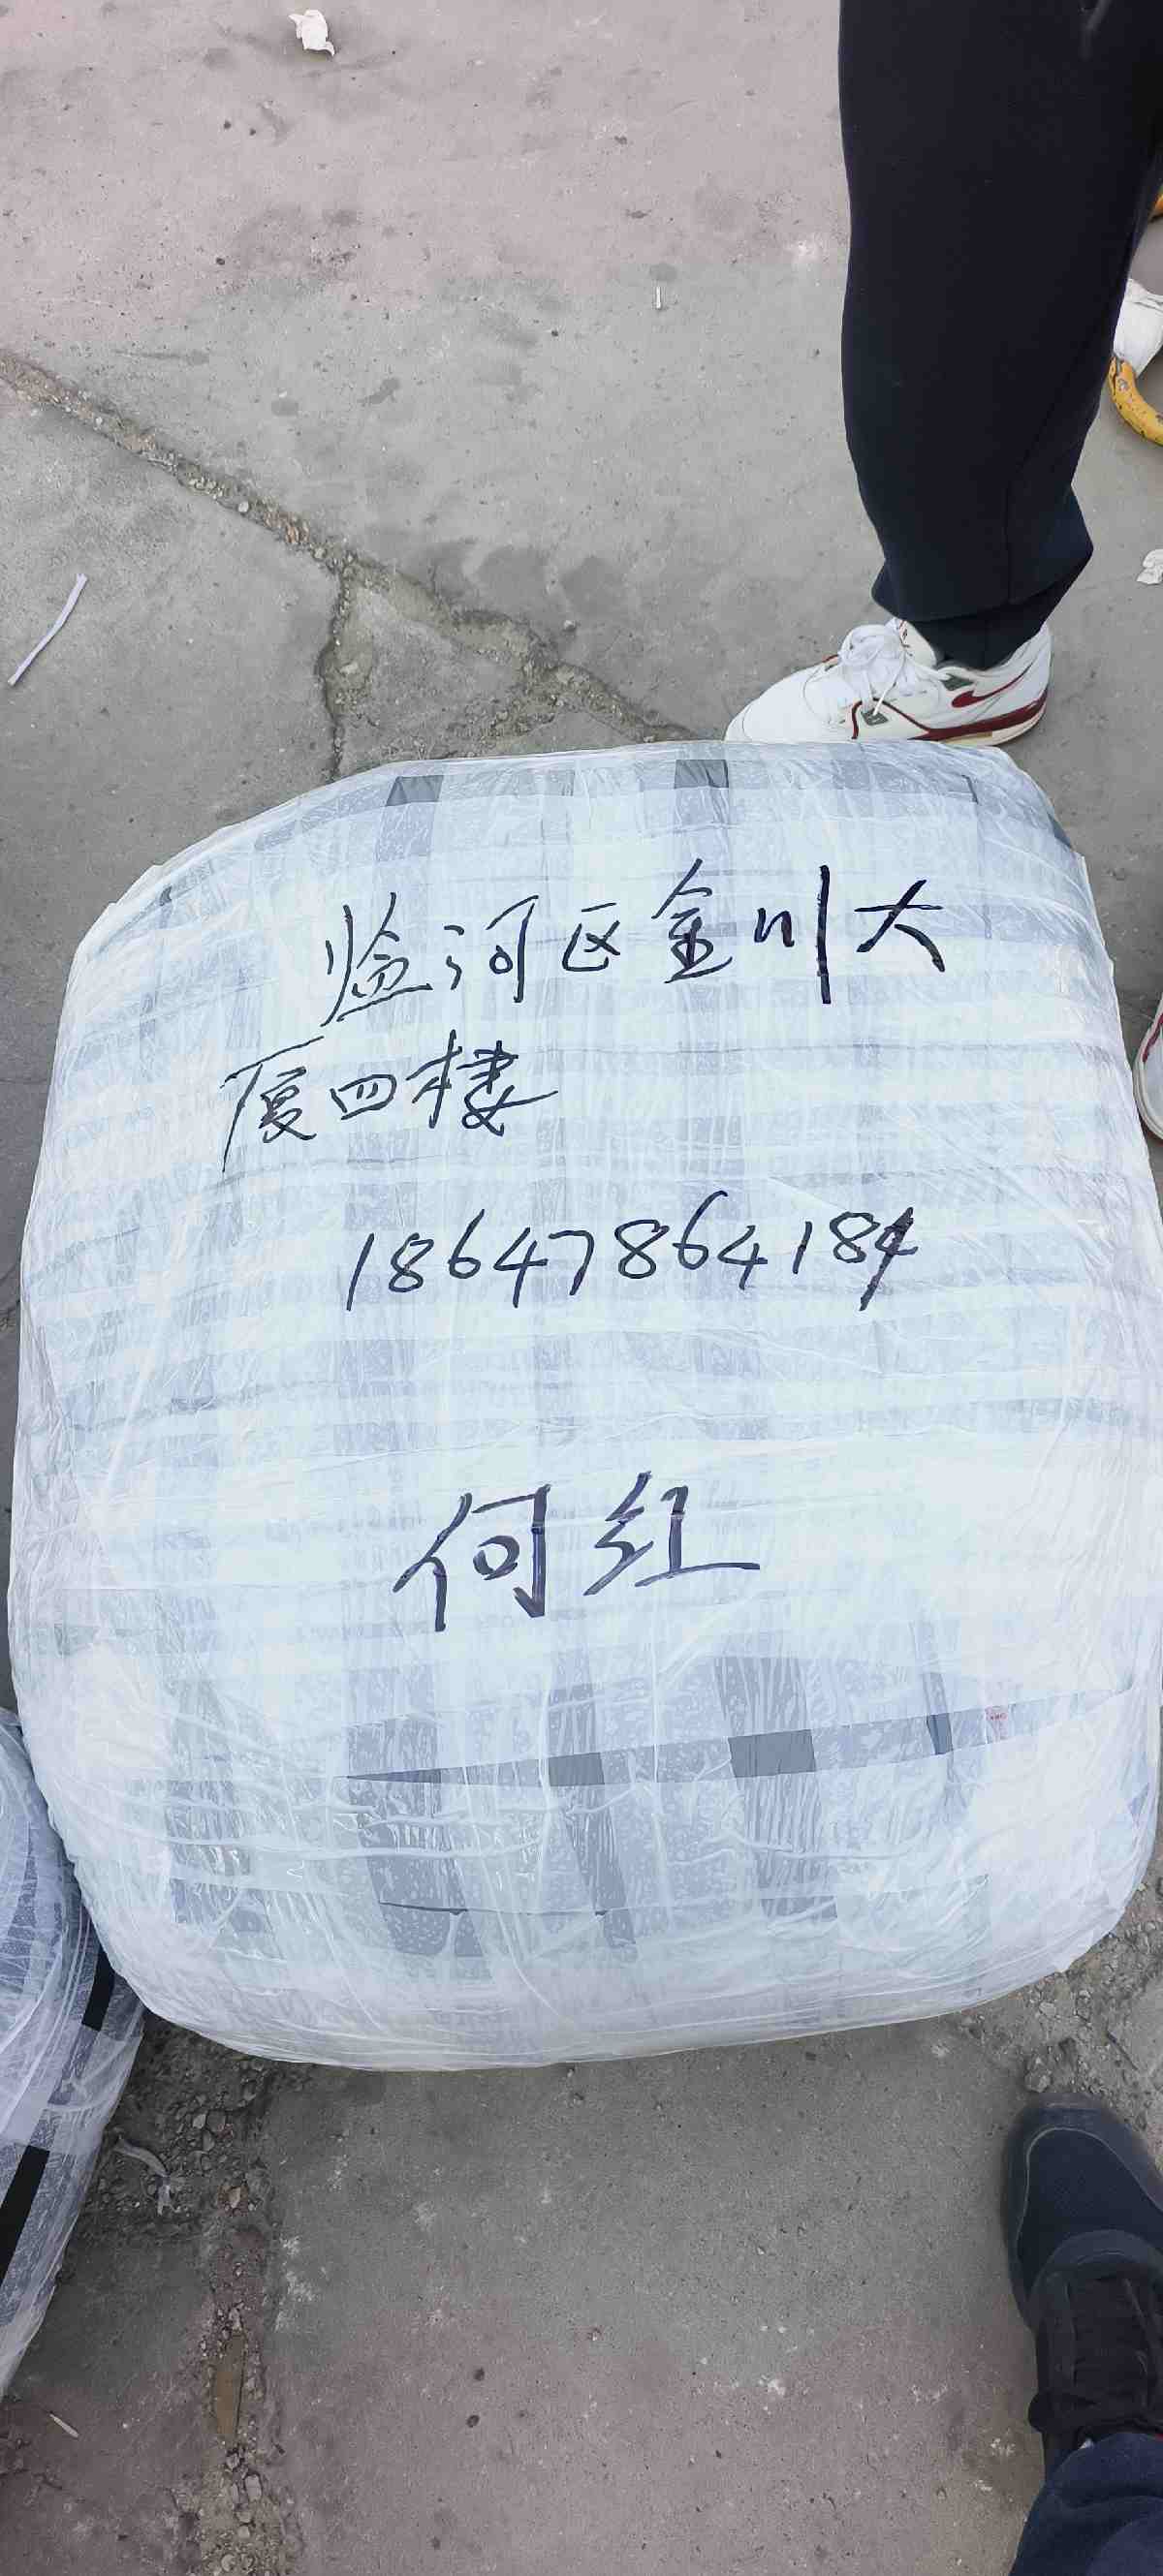 临河区金川大
厦四楼
18647864184
何红